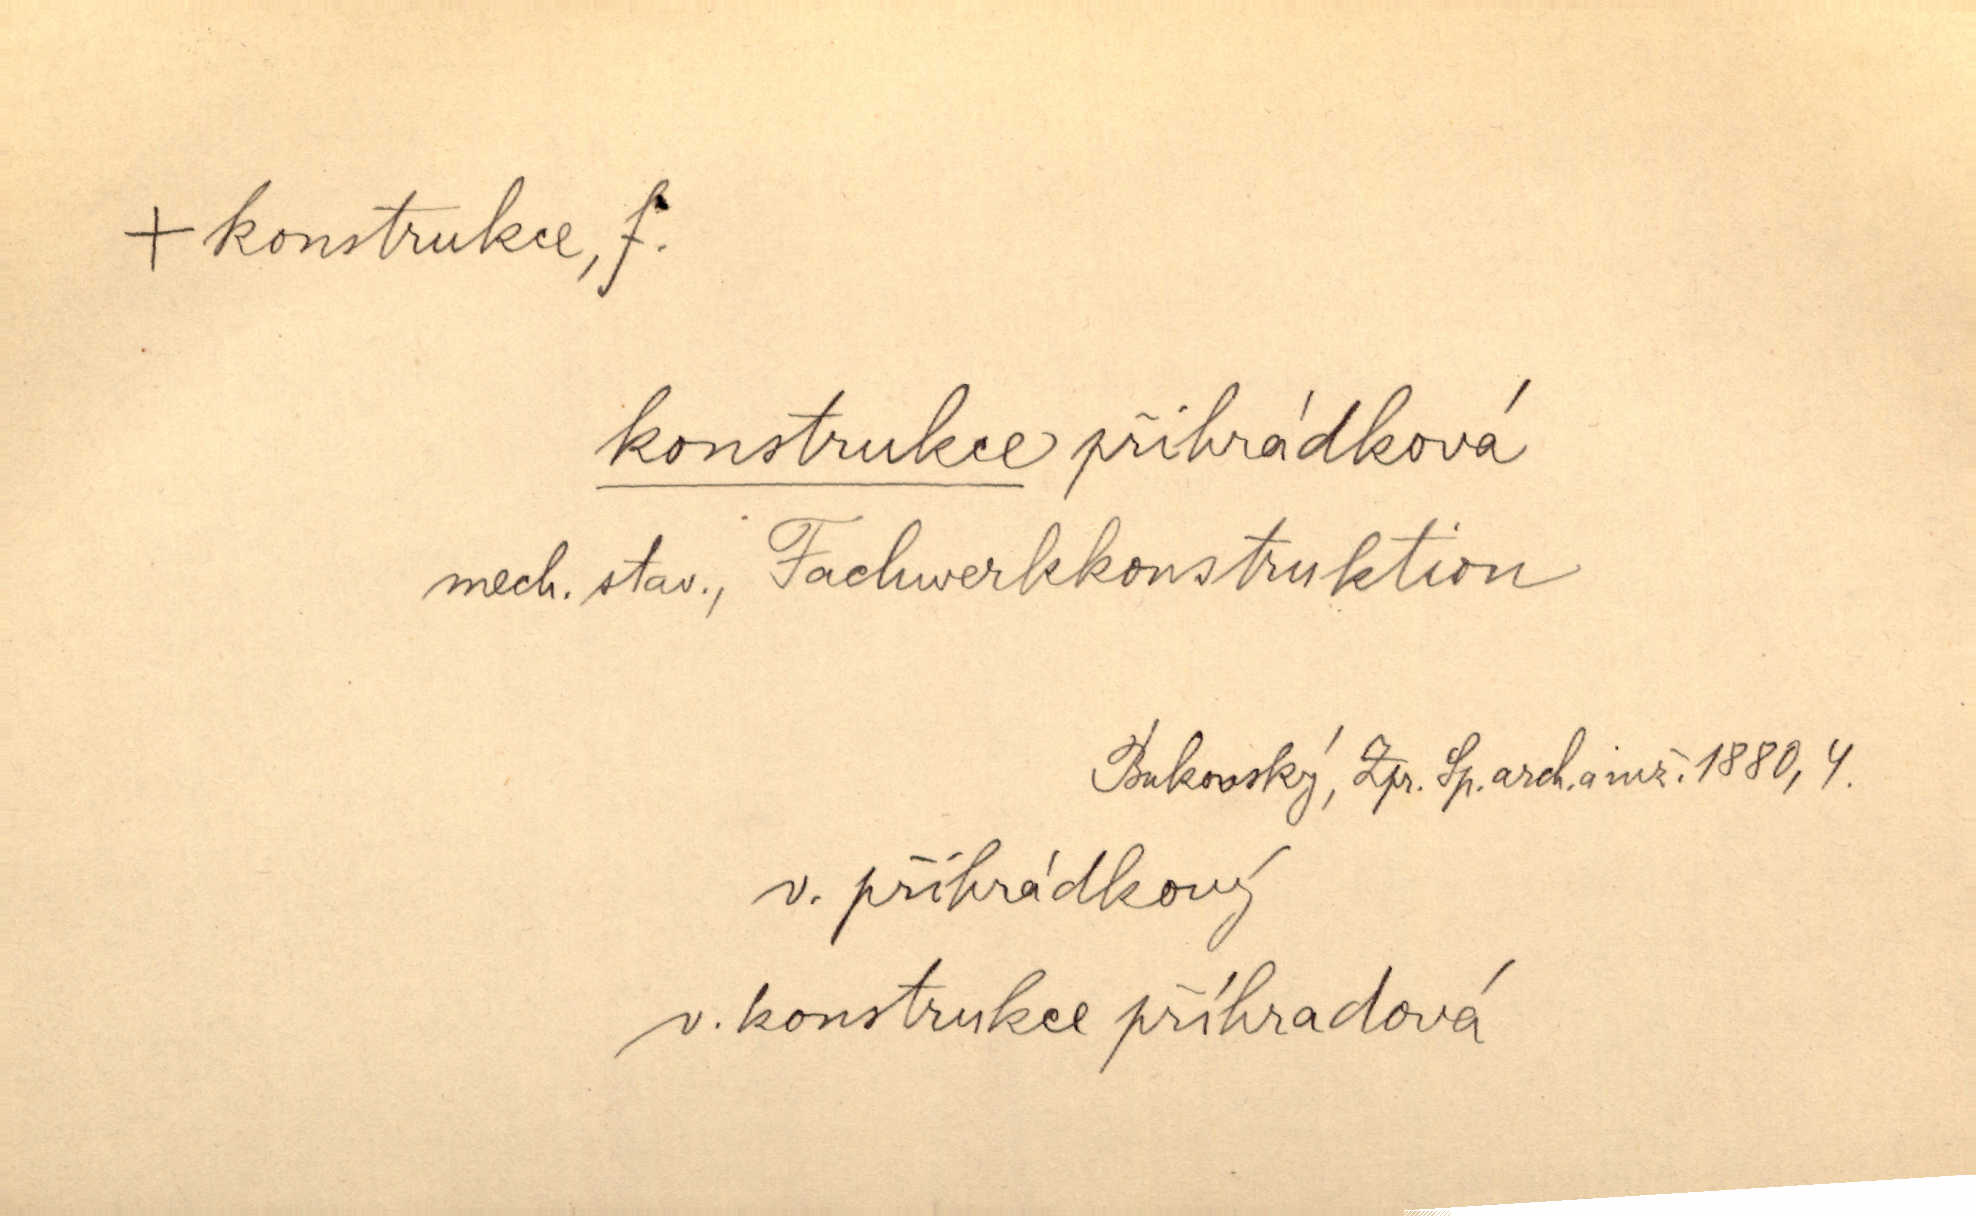 + konstrukce, f.
konstrukce přihrádková
mech. stav., Fachwerkkonstruktion
Bukovský, Zpr. Sp. arch. a inž. 1880, 4.
v. přihrádkový
v. konstrukce příhradová